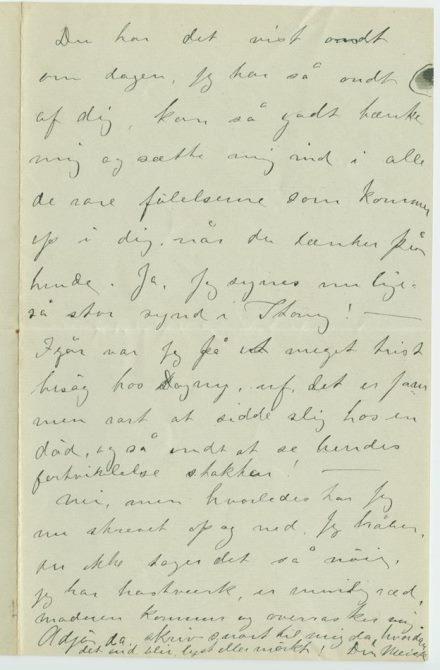 Du har det vist ondt
om dagen, jeg har så ondt
af dig, kan så godt tænke
mig og sætte mig ind i alle
de rare følelserne som kommer
op i dig, når du tænker på
hende. Ja, jeg synes nu lige-
så stor synd i Thony! —
Igår var jeg på et meget trist
besøg hos Dagny, uf, det er
men rart at sidde slig hos en
død, og så ondt at se hendes
fortvilelse stakker! —
Nei, men hvorledes har jeg
nu skrevet op og ned. Jeg håber,
du ikke tager det så nøie,
jeg har hastverk, er ræd,
kommer og overrasker mig
Adjø da, skriv snart til mig da, hvordan
det end blir lyst eller mørkt! Din